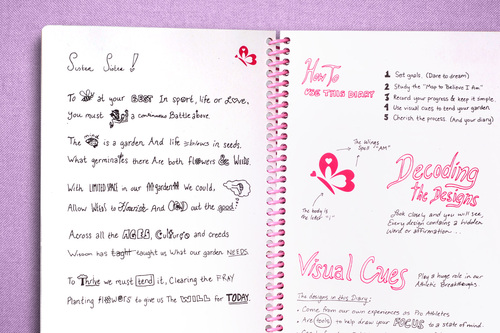 To at your BEST In sport, life or Love,
You must a continuous Battle above.
The mind is a garden And life is blown in seeds.
What germinates there Are both flowers & Weeds.
With LIMITED SPACE in our garden We could,
Allow Weeds to Flourish And out the good.
Across all the AGES, Cultures and creeds
Wisdom has taght taught us What our garden NEEDS.
To Thrive we must tend it, Clearing the FRAY
Planting flowers to give us The WILL for TODAY.
How To
USE THIS DIARY
1 Set goals. (Dare to dream)
2 Study the "Map to Believe I Am"
3 Record your progress & keep it simple.
4 Use visual cues to tend your garden.
5 Cherish the process. (And your diary)
The Wings
Spell "AM"
The body is
the letter "I"
Decoding
the Designs
Look closely and you will see,
Every design contains a hidden
word or affirmation...
Visual Cues
Play a huge role in our
Athletic Breakthroughs
The designs in this Diary:
• Come from our own experiences as Pro Athletes
• Are tools to help draw your FOCUS to a state of mind.